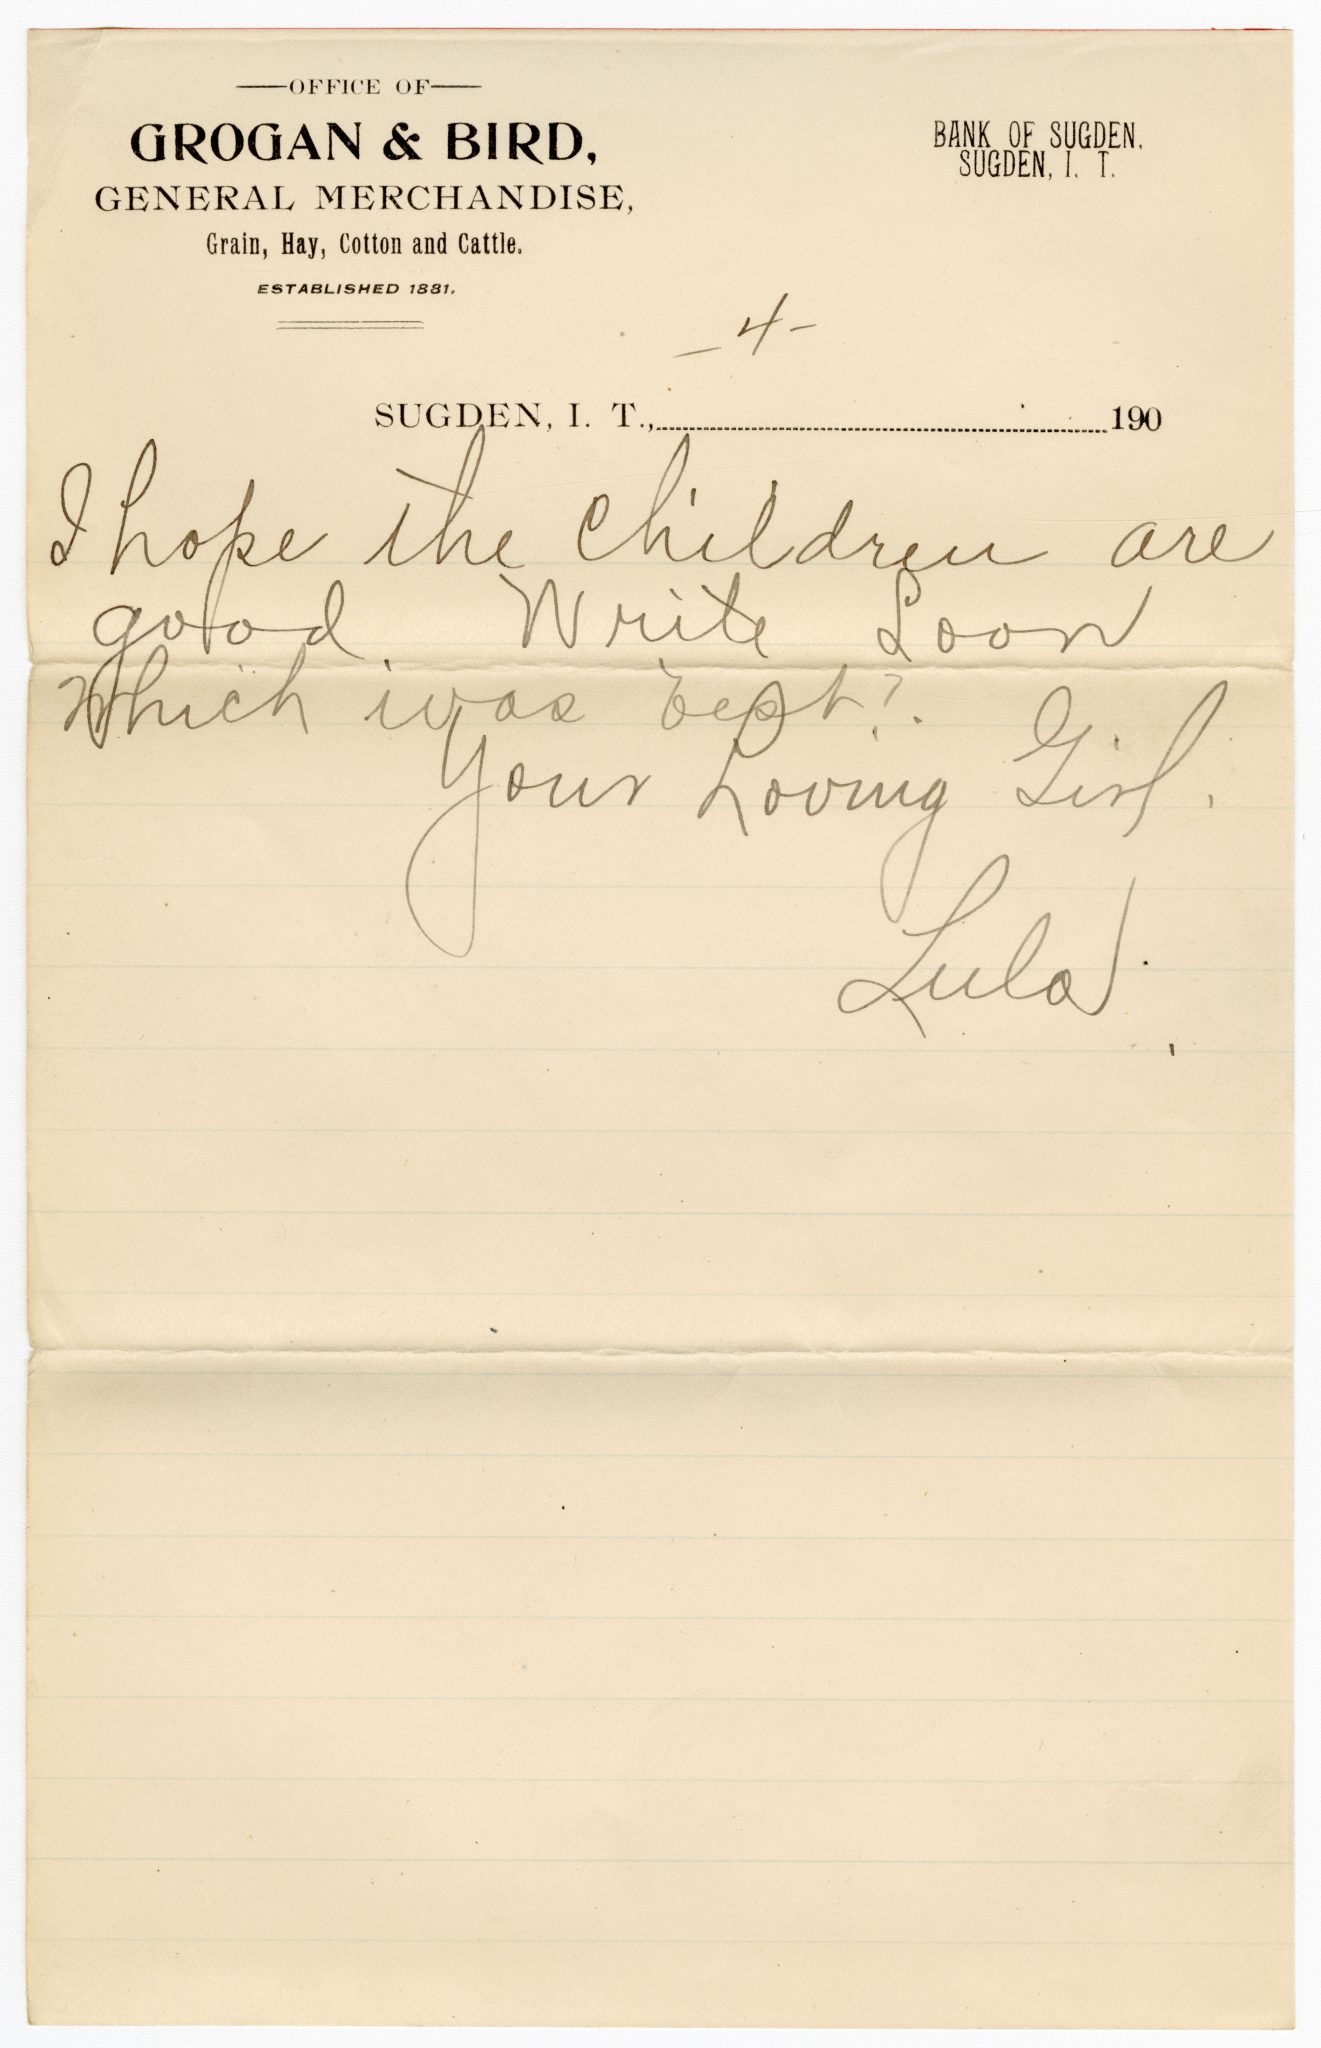 OFFICE OF
GROGAN & BIRD,
BANK OF SUGDEN.
SUGDEN, I. T.
GENERAL MERCHANDISE,
Grain, Hay, Cotton and Cattle.
ESTABLISHED 1881.
- 4 -
SUGDEN, I. T., 190
I hope the Children are
good. Write Soon
Which was best?.
Your Loving Girl.
Lula.